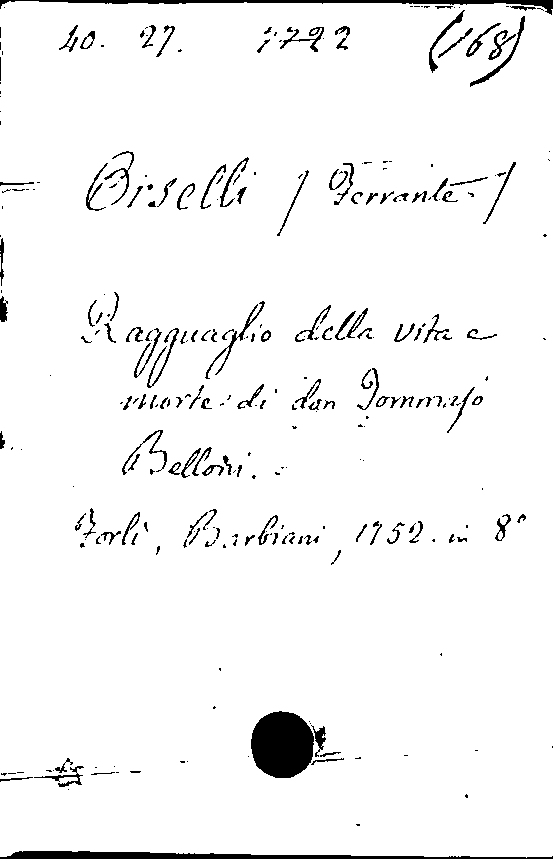 40. 27. 1722 (168)
Orselli / Ferrante /
Ragguaglio della vita e
morte di don Tommaso
Belloni.
Forlì, Barbiani, 1752. in 8°